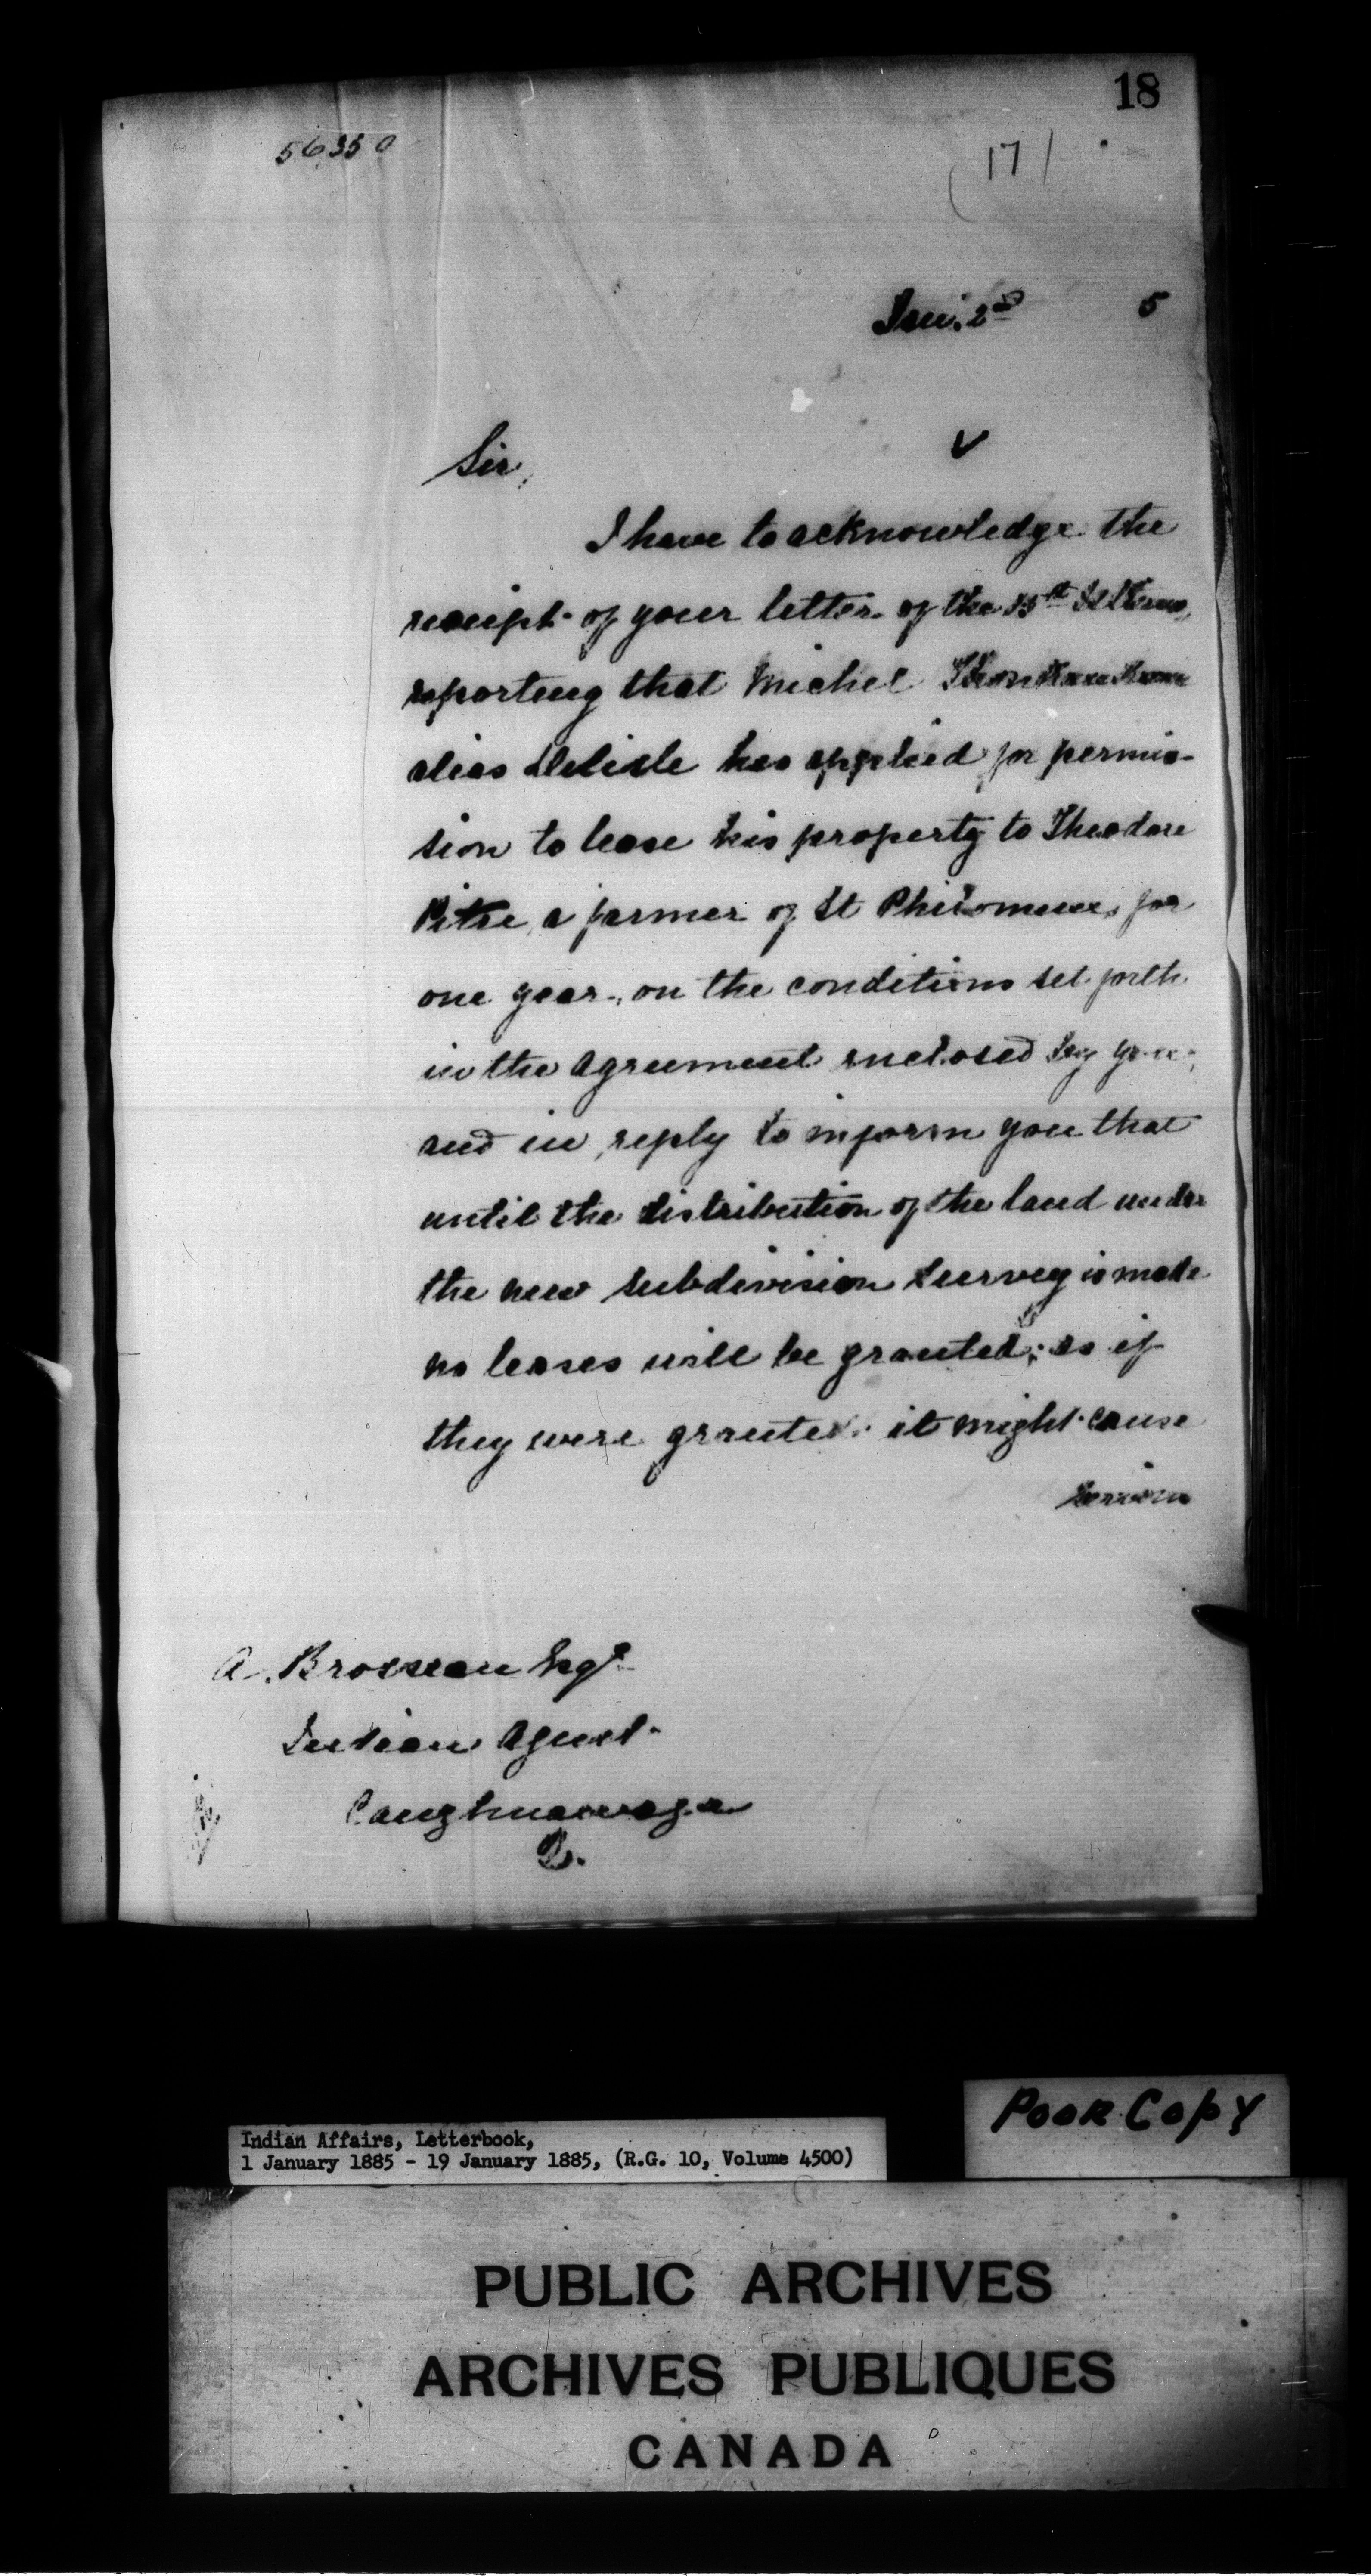 18
56350
17
Jan. 2nd 5
Sir,
I have to acknowledge the
receipt of your letter of the 15th Ultimo,
reporting that Michel
alias Delisle has applied for permis-
sion to lease his property to Theodore
Pitre, a farmer of St Philomene, for
one year, on the conditions set forth
in the agreement enclosed by you;
and in reply to inform you that
until the distribution of the land under
the new subdivision survey is made
no leases will be granted; as if
they were granted it might cause
serious
A. Brosseau Esqr
Indian Agent
Caughnawaga
Q.
Poor Copy
Indian Affairs, Letterbook,
1 January 1885 - 19 January 1885, (R.G. 10, Volume 4500)
PUBLIC ARCHIVES
ARCHIVES PUBLIQUES
CANADA